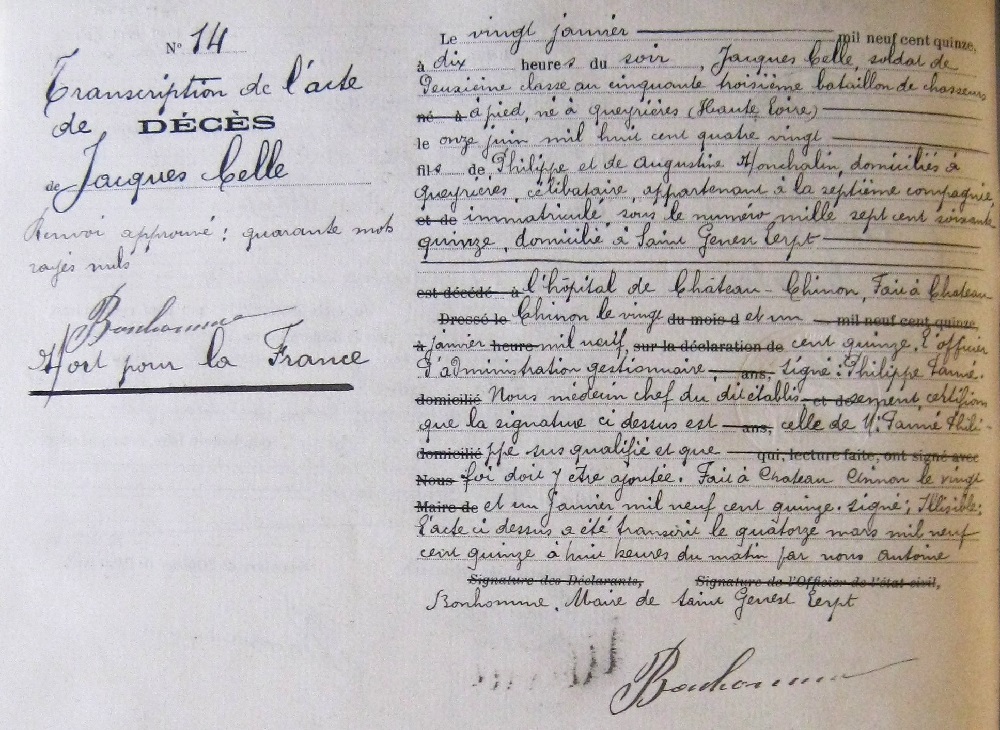 N° 14
Transcription de l'acte
de DÉCÈS
de Jacques Celle
Renvoi approuvé : quarante mots
rayés nuls
Bonhomme
Mort pour la France
Le vingt janvier mil neuf cent quinze,
à dix heures du soir, Jacques Celle, soldat de
Deuxième classe au cinquante troisième bataillon de chasseurs
né à à pied, né à Queyrières (Haute Loire)
le onze juin mil huit cent quatre vingt
fils de Philippe et de Augustine Monchalin, domiciliés à
Queyrières, célibataire, appartenant à la septième compagnie
et de immatriculé sous le numéro mille sept cent soixante
quinze, domicilié à Saint Genest Lerpt
est décédé à l'hôpital de Château-Chinon, Fait à Chateau
Dressé le Chinon le vingt du mois d et un mil neuf cent quinze,
à janvier heure mil neuf, sur la déclaration de cent quinze. L'officier
D'administration gestionnaire, ans, signé : Philippe Fanné.
domicilié Nous médecin chef du dit établis et de sement, certifions
que la signature ci dessus est ans, celle de M. Fanné Phili-
domicilié ppe sus qualifié et que qui, lecture faite, ont signé avec
Nous foi doit y être ajoutée. Fait à Chateau Cinnon le vingt
Maire de et un Janvier mil neuf cent quinze. signé ; Illisible ;
L'acte ci dessus a été transcrit le quatorze mars mil neuf
cent quinze à huit heures du matin par nous antoine
Signature des Déclarants, Signature de l'Officier de l'état civil,
Bonhomme, Maire de Saint Genest Lerpt
Bonhomme